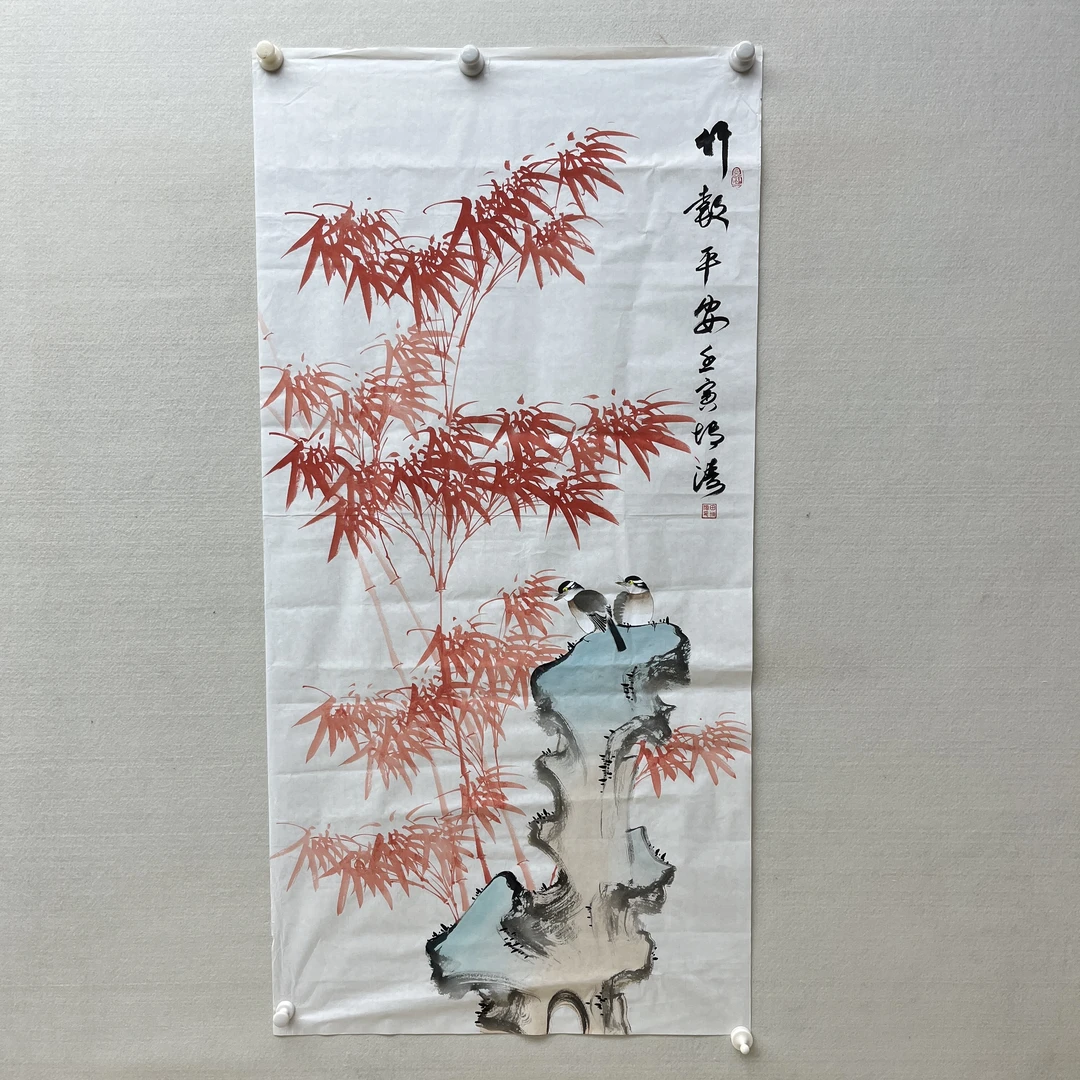 竹報平安壬寅